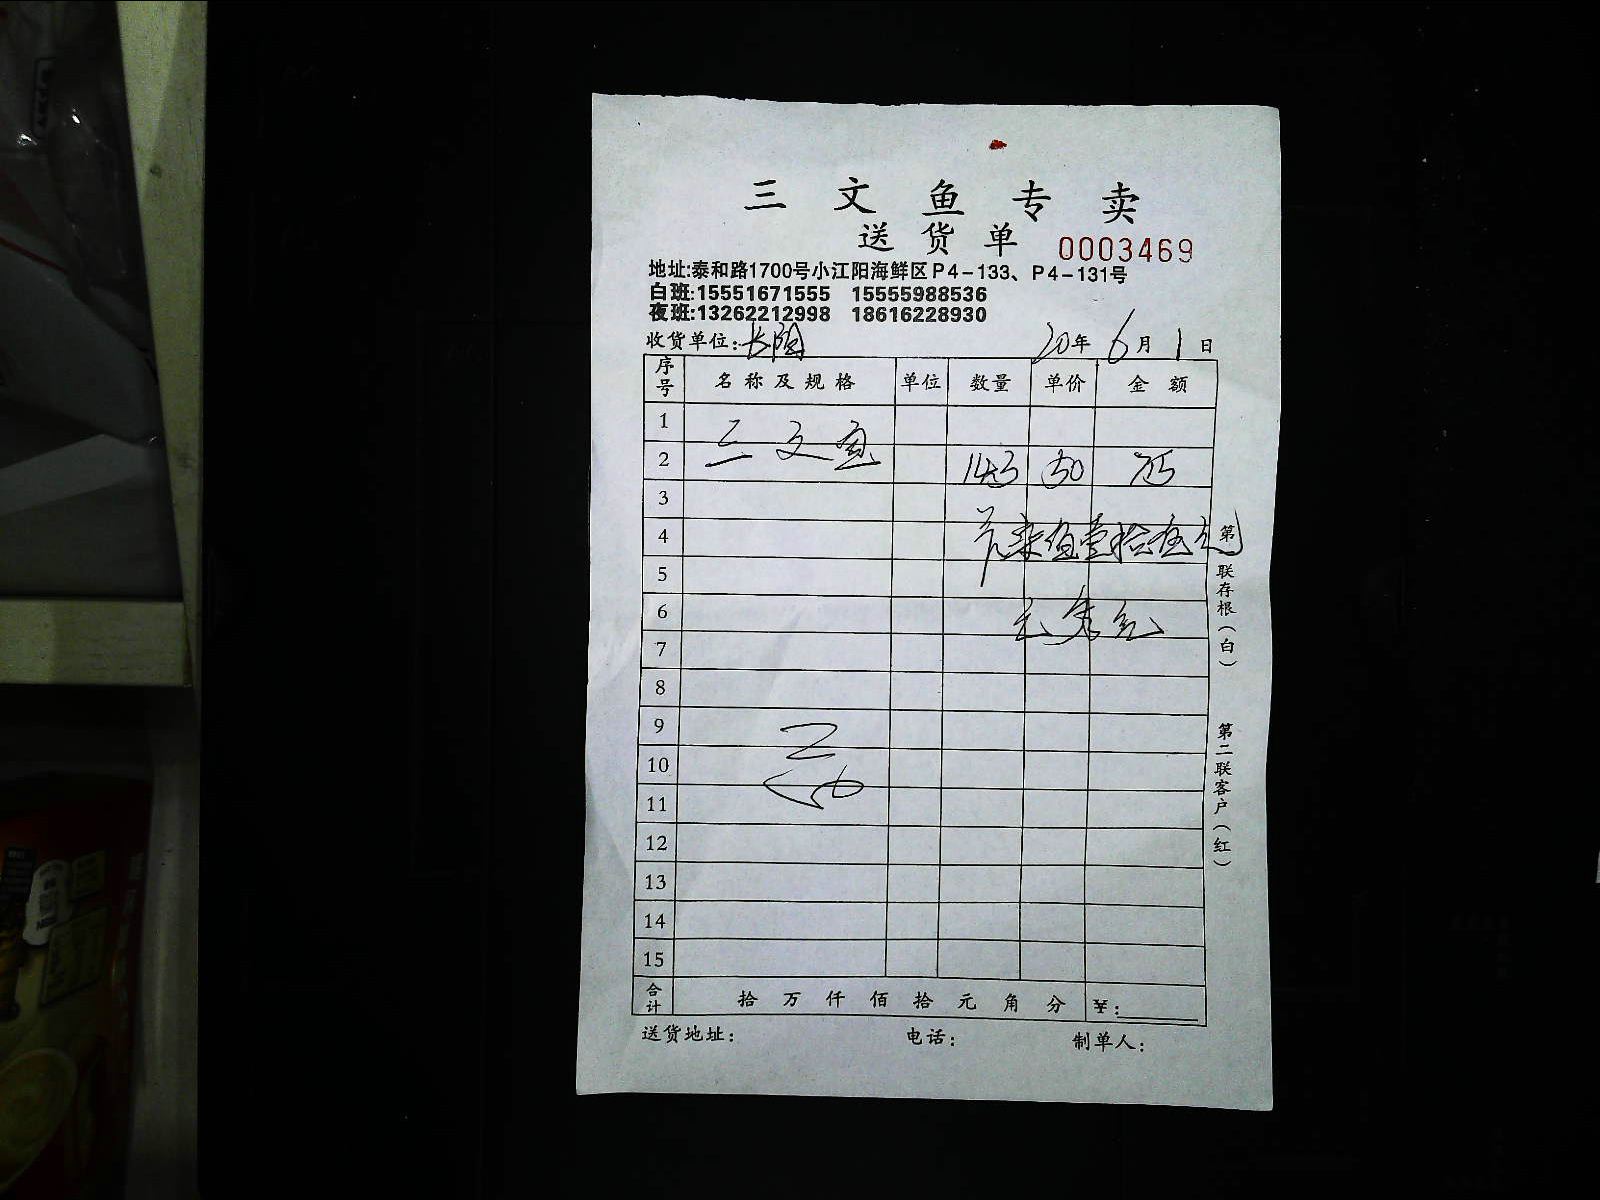 三文鱼专卖
送货单 0003469
地址:泰和路1700号小江阳海鲜区P4-133、P4-131号
白班:15551671555 15555988536
夜班:13262212998 18616228930
收货单位: 20年6月1日
序号 名称及规格 单位 数量 单价 金额
1
2 三文鱼 143 50 715
3
4
5
6
7
8
9
10
11
12
13
14
15
合计 拾万仟佰拾元角分 ¥:
送货地址: 电话: 制单人:
联存根(白)
第二联客户(红)